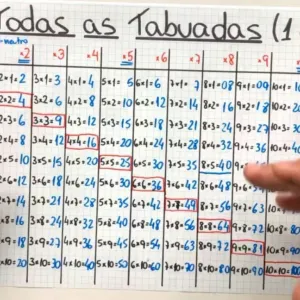 Todas as Tabuadas (1
neutro
×2 ×3 ×4 ×5 ×6 ×7 ×8 ×9
2×1=2 3×1=3 4×1=4 5×1=5 6×1=6 7×1=7 8×1=08 9×1=09 10×1=
2×2=4 3×2=6 4×2=8 5×2=10 6×2=12 7×2=14 8×2=16 9×2=18 10×2=
2×3=6 3×3=9 4×3=12 5×3=15 6×3=18 7×3=21 8×3=24 9×3=27 10×3=
2×4=8 3×4=12 4×4=16 5×4=20 6×4=24 7×4=28 8×4=32 9×4=36 10×4=
2×5=10 3×5=15 4×5=20 5×5=25 6×5=30 7×5=35 8×5=40
2×6=12 3×6=18 4×6=24 5×6=30 6×6=36 7×6=42 8×6=48
2×7=14 3×7=21 4×7=28 5×7=35 6×7=42 7×7=49 8×7=56 9×7=63
2×8=16 3×8=24 4×8=32 5×8=40 6×8=48 7×8=56 8×8=64 9×8=72
2×9=18 3×9=27 4×9=36 5×9=45 6×9=54 7×9=63 8×9=72 9×9=81 10×9=
2×10=20 3×10=30 4×10=40 5×10=50 6×10=60 7×10=70 8×10=80 9×10=90 10×10=